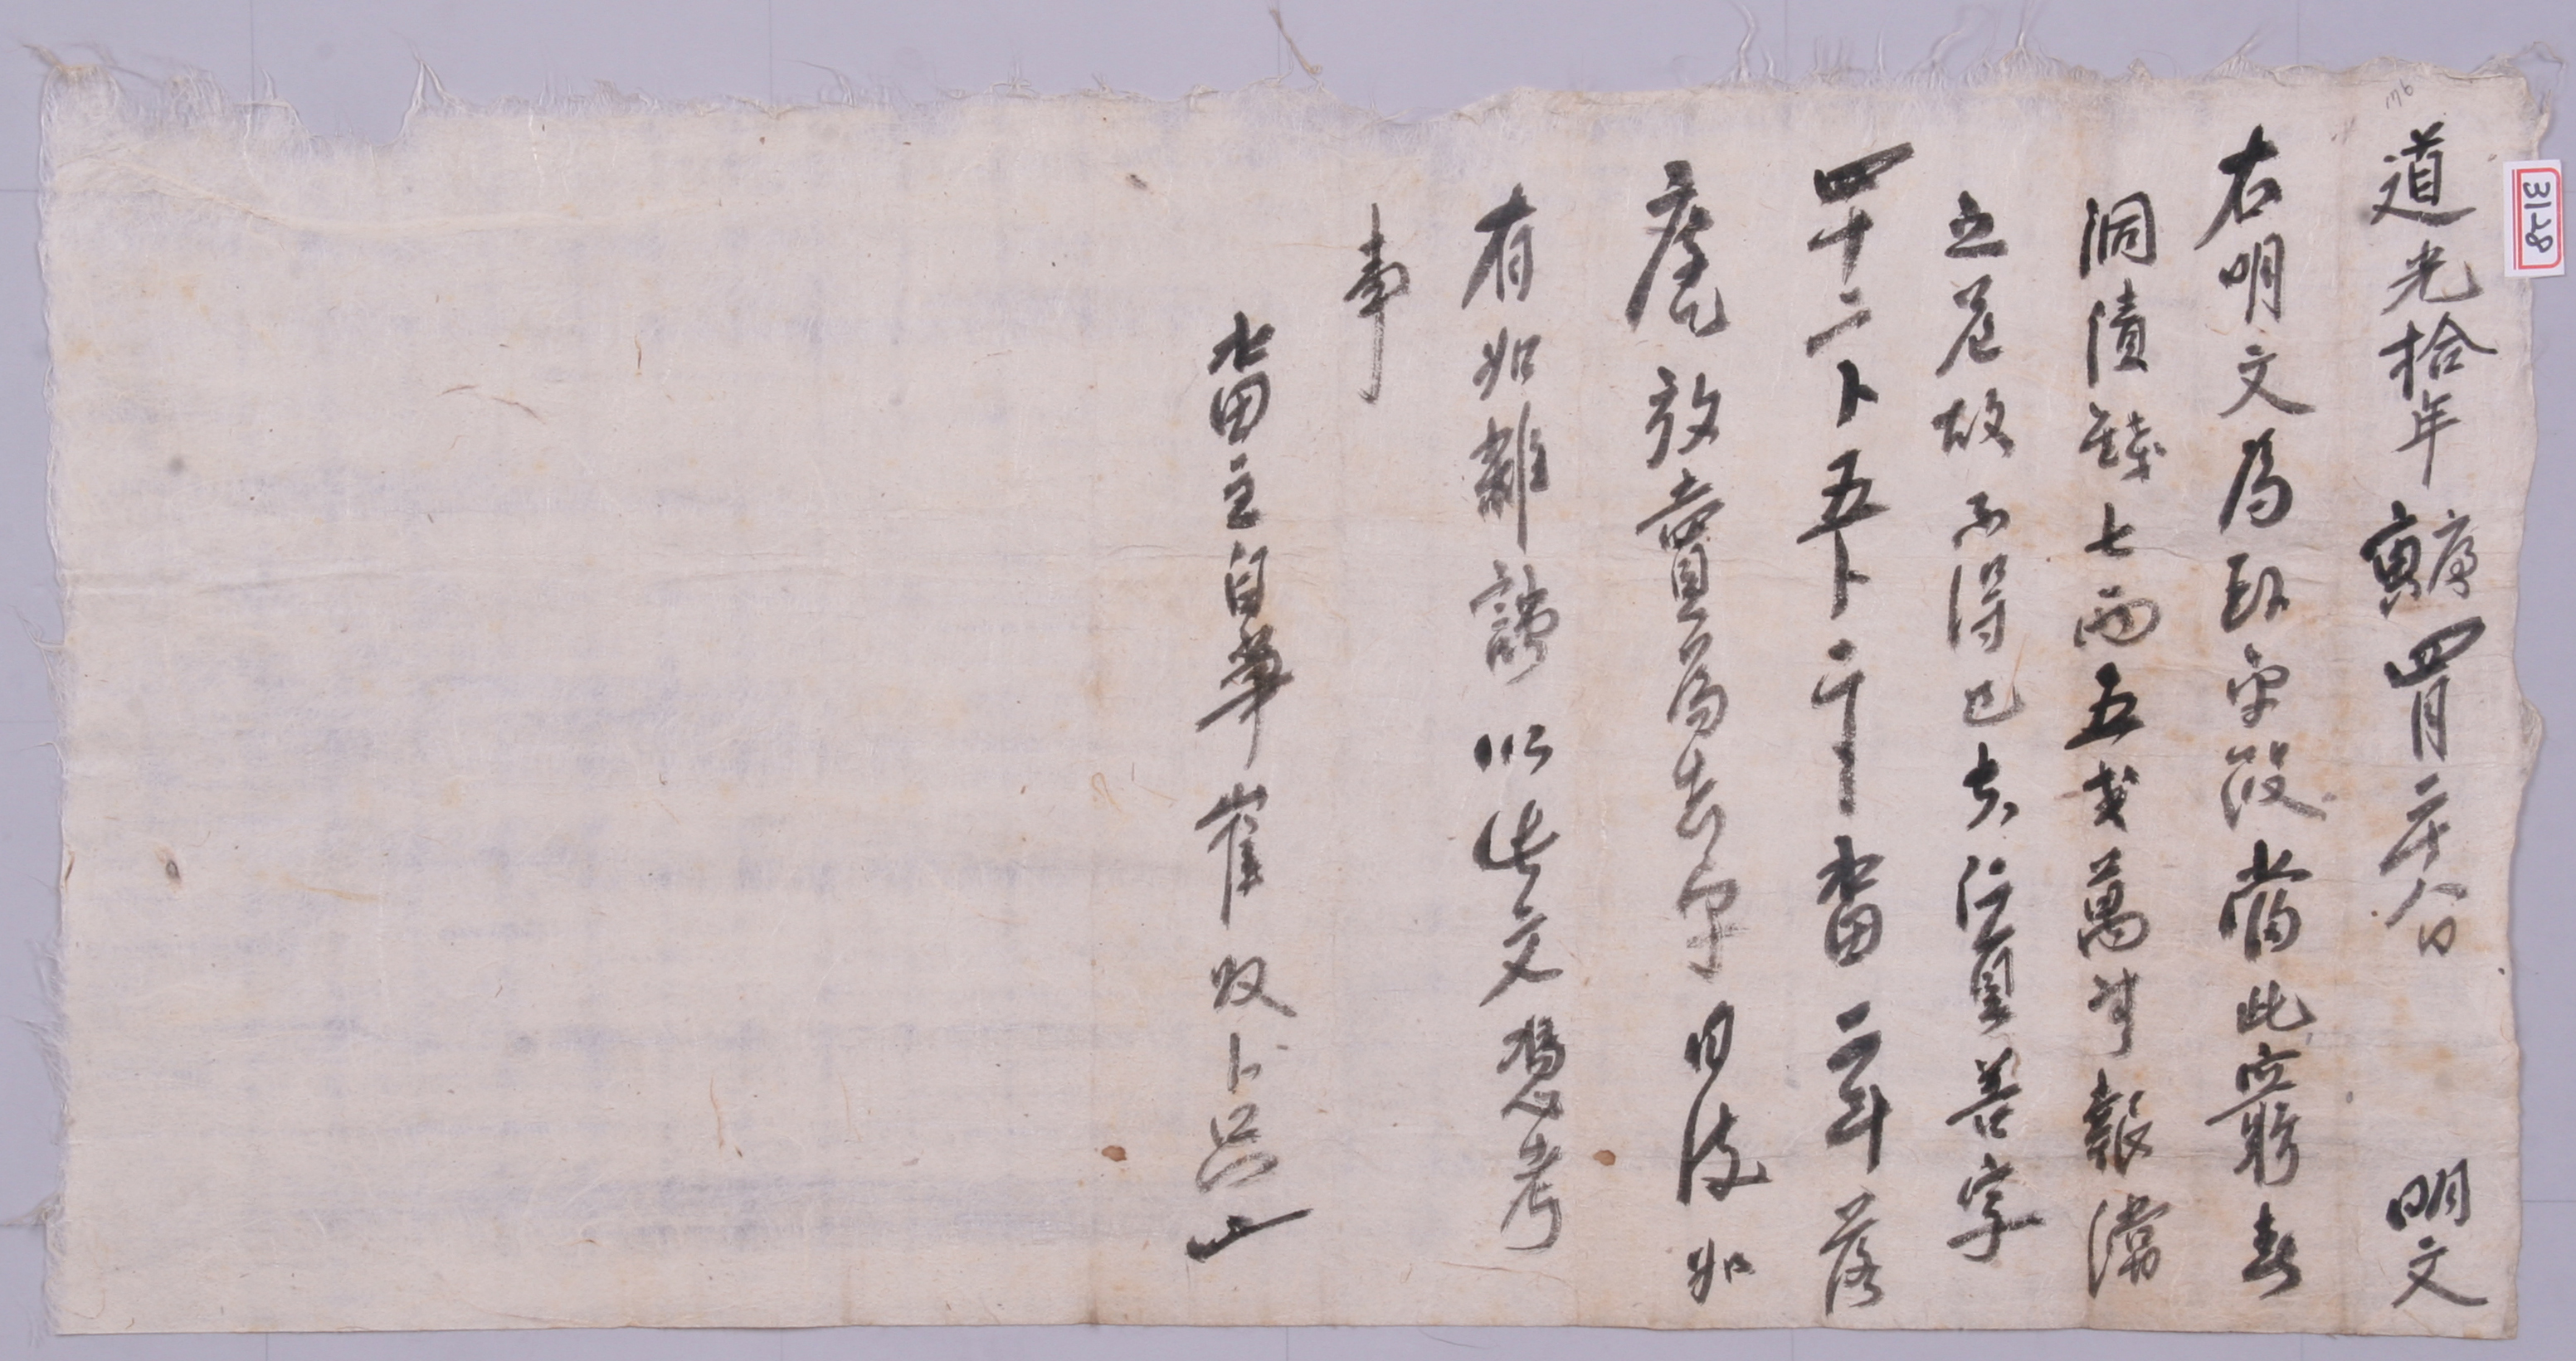 道光拾年庚寅四月二十八日 明文
右明文爲臥乎段當此窮春
洞債錢七兩五戔萬無報償
之道故不得已 位員善字
四十二卜五卜二十 畓二斗落
庫乙放賣爲去乎日後如
有如雜談以此文憑考
事
畓主自筆崔 卜只
3128